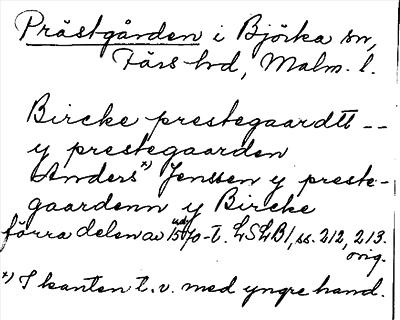 Prästgården i Björka sn,
Färs hd, Malm. l.
Bircke prestegaardtt --
y prestegaarden
Anders *) Jenssen y preste-
gaardenn y Bircke
förra delen av 1570-t. LSLB1, ss. 212, 213.
orig.
*) I kanten t.v. med yngre hand.